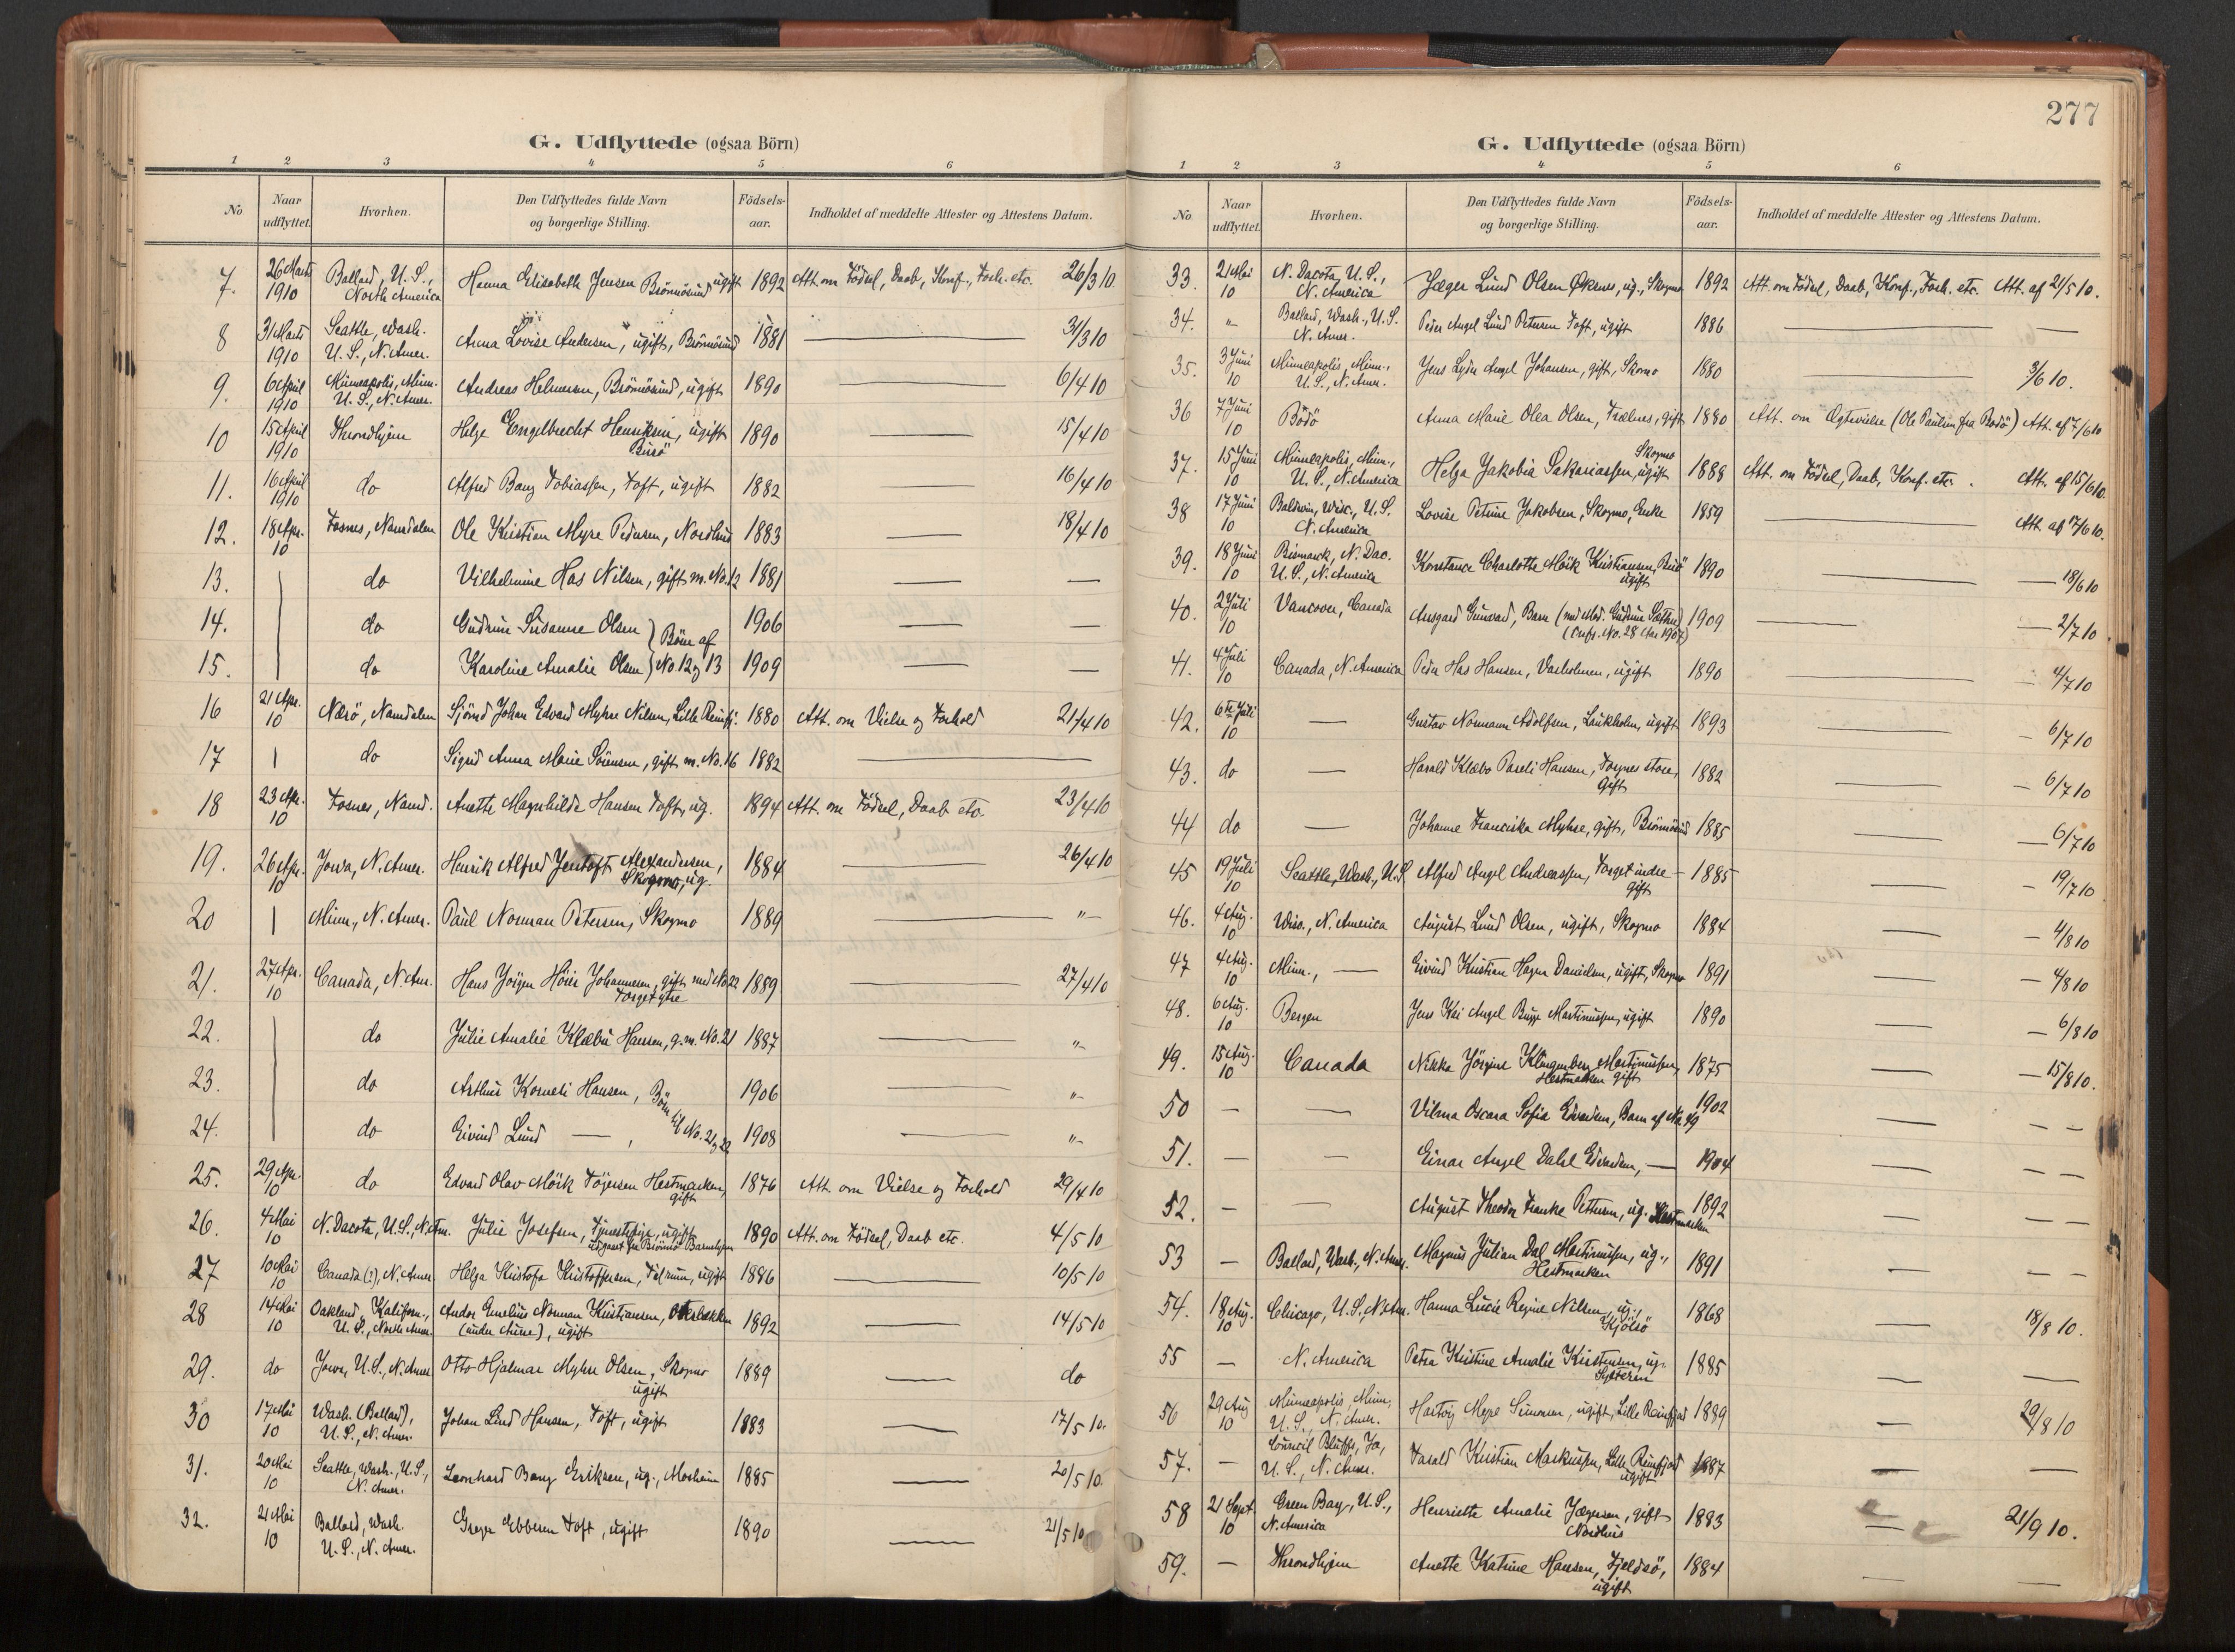 277
G. Udflyttede (ogsaa Börn)
1 2 3 4 5 6
No
Naar udflyttet.
Hvorhen.
Den Udflyttedes fulde Navn og borgerlige Stilling.
Födsels-aar.
Indholdet af meddelte Attester og Attestens Datum.
7. 26 Marts 1910 Ballard, U. S., North America Hanna Elisabeth Jensen Brönnösund ugift 1892 Att. om Födsel, Daab, Konf., Forh. etc. 26/3 10
8 31 Marts 1910 Seattle, Wash. U. S., N. Amer. Anna Lovise Andersen, ugift, Brönnösund 1881 — 31/3 10
9. 6 April 1910 Minneapolis, Minn. U. S., N. Amer. Andreas Helmersen, Brönnösund, ugift 1890 — 6/4 10
10 15 April 1910 Throndhjem Helge Engelbrecht Henriksen, ugift 1890 — 15/4 10
11. 16 April 1910 do Alfred Bang Tobiassen, Toft, ugift 1882 — 16/4 10
12. 18 Apr. 10 Fosnes, Namdalen Ole Kristian Myre Pedersen, Nordhus 1883 — 18/4 10
13. do Vilhelmine Has Nilsen, gift m. No. 12 1881 — —
14. do Gudrun Susanne Olsen } Börn af 1906 — —
15. do Karoline Amalie Olsen } No 12 og 13 1909 — —
16 21 Apr. 10 Nærö, Namdalen Sjömd Johan Edvard Myhre Nilsen, Lille Reinfj. 1880 Att. om Vielse og Forhold 21/4 10
17 do Sigrid Anna Marie Sörensen, gift m. No. 16 1882 —
18 23 Apr. 10 Fosnes, Namd. Anette Magnhilde Hansen Toft, ug. 1894 Att. om Födsel, Daab etc. 23/4 10
19. 26 Apr. 10 Jowa, N. Amer. Henrik Alfred Jentoft Alexandersen, Skogmo, ug. 1884 — 26/4 10
20 Minn., N. Amer. Paul Norman Petersen, Skogmo 1889 — "
21. 27 Apr. 10 Canada, N. Am. Hans Jörgen Höier Johannesen, gift med No 22 Torget ytre 1889 — 27/4 10
22. do Julie Amalie Klæbu Hansen, g. m. No. 21 1887 — "
23. do Arthur Korneli Hansen, Börn af 1906 — "
24. do Eivind Lund —, No. 21 og 22 1908 — "
25. 29 Apr. 10 do Edvard Olav Mörk Töjersen Hestmarken, gift 1876 Att. om Vielse og Forhold 29/4 10
26. 4 Mai 10 N. Dacota, U. S., N. Am. Julie Josefsen, Tjenestepige, ugift 1890 Att. om Födsel, Daab etc. 4/5 10
27 10 Mai 10 Canada (?), N. Amer. Helga Kristofa Kristoffersen, ugift 1886 — 10/5 10
28 14 Mai 10 Oakland, Kaliforn., U. S., North Amer. Andor Emelius Norman Kristiansen, ugift 1892 — 14/5 10
29. do Jowa, U. S., N. Amer Otto Hjalmar Myhre Olsen, Skogmo ugift 1889 — do
30 17 Mai 10 Wash. (Ballard), U. S., N. Amer. Johan Lund Hansen, Toft, ugift 1883 — 17/5 10.
31. 20 Mai 10 Seattle, Wash., U. S., N. Amer. Leonhard Bang Eriksen, ug., Mosheim 1885 — 20/5 10
32. 21 Mai 10 Ballard, Wash. U. S., N. Amer. Gregor Ebbesen Toft, ugift 1890 — 21/5 10
G. Udflyttede (ogsaa Börn)
1 2 3 4 5 6
No
Naar udflyttet.
Hvorhen.
Den Udflyttedes fulde Navn og borgerlige Stilling.
Födsels-aar.
Indholdet af meddelte Attester og Attestens Datum.
33. 21 Mai 10 N. Dacota, U. S., N. America Jæger Lund Olsen Öksnes, ug., Skogmo 1892 Att. om Födsel, Daab, Konf., Forh. etc. Att. af 21/5 10.
34. " Ballard, Wash., U. S. N. Amer. Peder Angel Lund Petersen Toft, ugift 1886 — —
35. 3 Juni 10 Minneapolis, Minn., U. S., N. Amer. Jens Lyder Angel Johansen, gift, Skomo 1880 — 3/6 10.
36 7 Juni 10 Bodö Anna Marie Olea Olsen, Trælnes, gift 1880 Att. om Ægtevielse (Ole Paulsen fra Bodö) Att. af 7/6 10
37. 15 Juni 10 Minneapolis, Minn., U. S., N. America Helga Jakobia Sakariassen, ugift Skogmo 1888 Att. om Födsel, Daab, Konf. etc. Att. af 15/6 10.
38 17 Juni 10 Baldwin, Wisc., U. S. N. America Lovise Petrine Jakobsen, Skogmo, Enke 1859 — Att. af 17/6 10.
39. 18 Juni 10 Bismarck, N. Dac. U. S., N. America Konstance Charlotte Mörk Kristiansen, ugift 1890 — 18/6 10
40. 2 Juli 10 Vancover, Canada Ansgard Gunvard, Barn 1909 — 2/7 10
41. 4 Juli 10 Canada, N. America Peder Has Hansen, Vasholmen, ugift 1890 — 4/7 10
42. 6te Juli 10 — Gustav Normann Adolfsen, Laukholm, ugift 1893 — 6/7 10
43. do — Harald Klæbo Pareli Hansen, gift 1882 — 6/7 10
44 do — Johanne Franciska Myhre, gift, Brönnösund 1885 — 6/7 10
45 19 Juli 10 Seattle, Wash., U. S. Alfred Angel Andreassen, Torget indre gift 1885 — 19/7 10
46. 4 Aug. 10 Wisc., N. America August Lund Olsen, ugift, Skogmo 1884 — 4/8 10
47 4 Aug. 10 Minn., — Eivind Kristian Hagen Danielsen, ugift, Skogmo 1891 — 4/8 10
48. 6 Aug. 10 Bergen Jens Kai Angel Bugge Martinussen, ugift 1890 — 6/8 10
49. 15 Aug. 10 Canada Nikka Jörgine Klingenberg Martinussen, Hestmarken gift 1875 — 15/8 10.
50 — — Vilma Oscara Sofia Edvardsen, Barn af No. 49 1902 — — —
51. — — Einar Angel Dahl Edvardsen, — 1904 — — —
52. — — August Theodor Franke Pettersen, ug. Hestmarken 1892 — — —
53 — Ballard, Wash., N. Amer. Magnus Julian Dal Martinussen, ug., Hestmarken 1891 — — —
54. 18 Aug. 10 Chicago, U. S., N. Am. Hanna Lucie Regine Nilsen, ug. 1868 — 18/8 10.
55 — N. America Petra Kristine Amalie Kristensen, ug. 1885 — —
56 29 Aug 10 Minneapolis, Minn., U. S., N. Amer. Hartvig Meyer Simonsen, ugift, Lille Reinfjord 1889 — 29/8 10
57. — Council Bluffs, Ja, U. S., N. Amer. Harald Kristian Markussen, Lille Reinfjord ugift 1887 — —
58 21 Sept 10 Green Bay, U. S., N. America Henriette Amalie Jægersen, gift Nordhus 1883 — 21/9 10.
59. — Throndhjem Anette Katrine Hansen, Fjeldsö, ugift 1884 — —